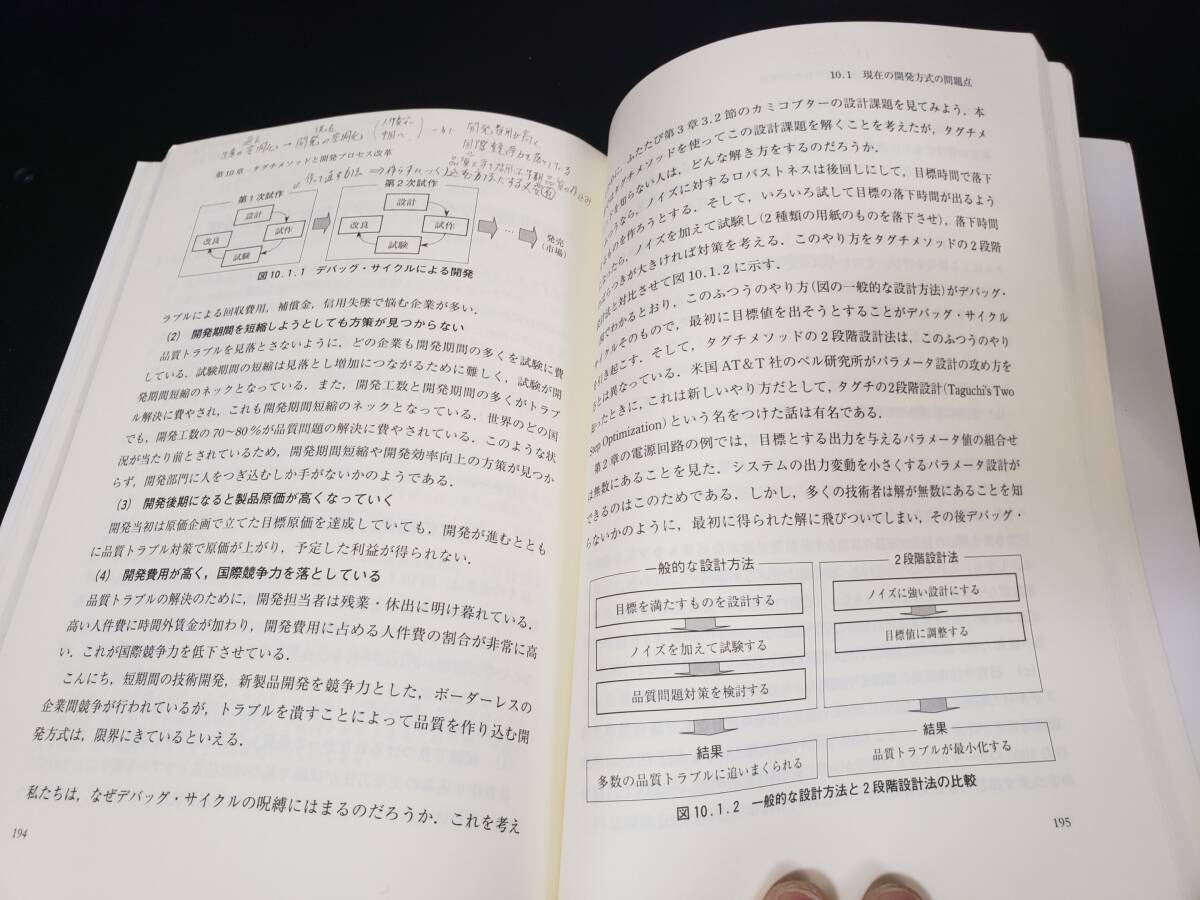 開発費用が高く
国際競争力を落としている
第10章 タグチメソッドと開発プロセス改革
第1次試作
設計
試作
試験
改良
第2次試作
設計
試作
試験
改良
…
発売
(市場)
図10.1.1 デバッグ・サイクルによる開発
ラブルによる回収費用，補償金，信用失墜で悩む企業が多い．
(2) 開発期間を短縮しようとしても方策が見つからない
品質トラブルを見落とさないように，どの企業も開発期間の多くを試験に費
している．試験期間の短縮は見落とし増加につながるために難しく，試験が開
発期間短縮のネックとなっている．また，開発工数と開発期間の多くがトラブ
ル解決に費やされ，これも開発期間短縮のネックとなっている．世界のどの国
でも，開発工数の70～80％が品質問題の解決に費やされている．このような状
況が当たり前とされているため，開発期間短縮や開発効率向上の方策が見つか
らず，開発部門に人をつぎ込むしか手がないかのようである．
(3) 開発後期になると製品原価が高くなっていく
開発当初は原価企画で立てた目標原価を達成していても，開発が進むととも
に品質トラブル対策で原価が上がり，予定した利益が得られない．
(4) 開発費用が高く，国際競争力を落としている
品質トラブルの解決のために，開発担当者は残業・休出に明け暮れている．
高い人件費に時間外賃金が加わり，開発費用に占める人件費の割合が非常に高
い．これが国際競争力を低下させている．
こんにち，短期間の技術開発，新製品開発を競争力とした，ボーダーレスの
企業間競争が行われているが，トラブルを潰すことによって品質を作り込む開
発方式は，限界にきているといえる．
私たちは，なぜデバッグ・サイクルの呪縛にはまるのだろうか．これを考え
194
10.1 現在の開発方式の問題点
ふたたび第3章3.2節のカミコプターの設計課題を見てみよう．本
ではタグチメソッドを使ってこの設計課題を解くことを考えたが，タグチメ
ドを知らない人は，どんな解き方をするのだろうか．
うなら，ノイズに対するロバストネスは後回しにして，目標時間で落下
るものを作ろうとする．そして，いろいろ試して目標の落下時間が出るよう
なったら，ノイズを加えて試験し(2種類の用紙のものを落下させ)，落下時間
ばらつきが大きければ対策を考える．このやり方をタグチメソッドの2段階
計法と対比させて図10.1.2に示す．
図でわかるとおり，このふつうのやり方(図の一般的な設計方法)がデバッグ・
サイクルそのもので，最初に目標値を出そうとすることがデバッグ・サイクル
を引き起こす．そして，タグチメソッドの2段階設計法は，このふつうのやり
方とは異なっている．米国AT&T社のベル研究所がパラメータ設計の攻め方を
知ったときに，これは新しいやり方だとして，タグチの2段階設計(Taguchi's Two
Step Optimization)という名をつけた話は有名である．
第2章の電源回路の例では，目標とする出力を与えるパラメータ値の組合せ
は無数にあることを見た．システムの出力変動を小さくするパラメータ設計が
できるのはこのためである．しかし，多くの技術者は解が無数にあることを知
らないかのように，最初に得られた解に飛びついてしまい，その後デバッグ・
一般的な設計方法
目標を満たすものを設計する
ノイズを加えて試験する
品質問題対策を検討する
結果
多数の品質トラブルに追いまくられる
2段階設計法
ノイズに強い設計にする
目標値に調整する
結果
品質トラブルが最小化する
図10.1.2 一般的な設計方法と2段階設計法の比較
195